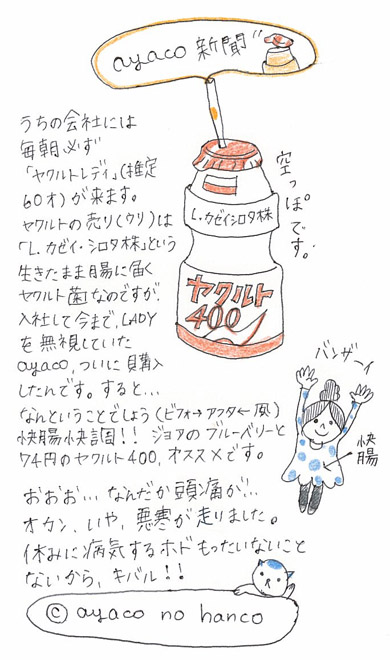 ayaco 新聞"
うちの会社には
毎朝必ず
「ヤクルトレディ」(推定
60才)が来ます。
ヤクルトの売り(ウリ)は
「L.カゼイ・シロタ株」という
生きたまま腸に届く
ヤクルト菌なのですが、
入社して今まで、LADY
を無視していた
ayaco、ついに購入
したんです。すると…
なんということでしょう(ビフォ→アフタ←風)
快腸快調!! ジョアのブルーベリーと
74円のヤクルト400、オススメです。
おおお… なんだか頭痛が…
オカン、いや、悪寒が走りました。
休みに病気するホドもったいないこと
ないから、キバル!!
空っぽです。
L.カゼイシロタ株
ヤクルト
400
バンザーイ
快腸
© ayaco no hanco